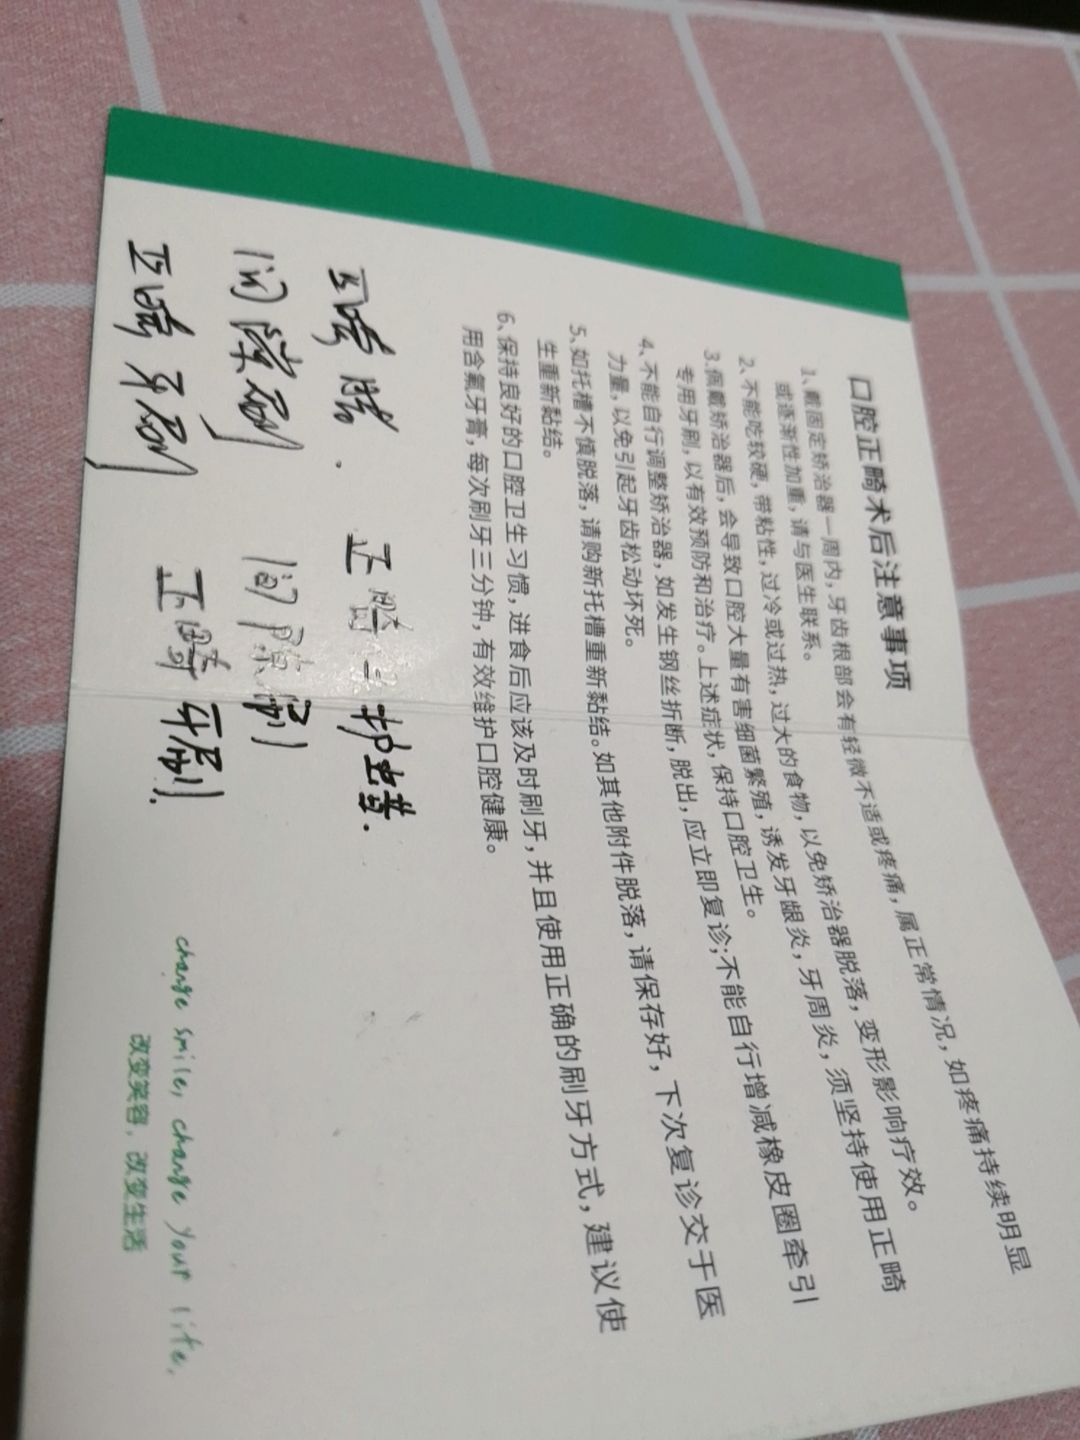 口腔正畸术后注意事项
1、戴固定矫治器一周内，牙齿根部会有轻微不适或疼痛，属正常情况，如疼痛持续明显
或逐渐性加重，请与医生联系。
2、不能吃较硬，带粘性，过冷或过热，过大的食物，以免矫治器脱落，变形影响疗效。
3.佩戴矫治器后，会导致口腔大量有害细菌繁殖，诱发牙龈炎，牙周炎，须坚持使用正畸
专用牙刷，以有效预防和治疗。上述症状，保持口腔卫生。
4、不能自行调整矫治器，如发生钢丝折断，脱出，应立即复诊；不能自行增减橡皮圈牵引
力量，以免引起牙齿松动坏死。
5、如托槽不慎脱落，请购新托槽重新黏结。如其他附件脱落，请保存好，下次复诊交于医
生重新黏结。
6、保持良好的口腔卫生习惯，进食后应该及时刷牙，并且使用正确的刷牙方式，建议使
用含氟牙膏，每次刷牙三分钟，有效维护口腔健康。
正畸腊. 正畸护蜡.
间隙刷 间隙刷
正畸牙刷 正畸牙刷.
change smile, change your life.
改变笑容，改变生活